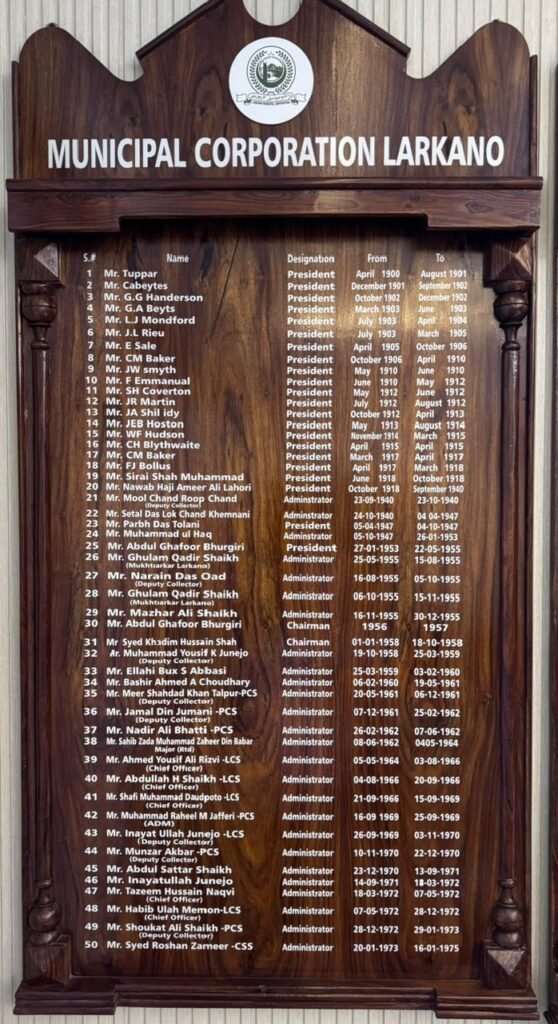 MUNICIPAL CORPORATION LARKANO
S.# Name Designation From To
1 Mr. Tuppar President April 1900 August 1901
2 Mr. Cabeytes President December 1901 September 1902
3 Mr. G.G Handerson President October 1902 December 1902
4 Mr. G.A Beyts President March 1903 June 1903
5 Mr. L.J Mondford President July 1903 April 1904
6 Mr. J.L Rieu President July 1903 March 1905
7 Mr. E Sale President April 1905 October 1906
8 Mr. CM Baker President October 1906 April 1910
9 Mr. JW smyth President May 1910 June 1910
10 Mr. F Emmanual President June 1910 May 1912
11 Mr. SH Coverton President May 1912 June 1912
12 Mr. JR Martin President July 1912 August 1912
13 Mr. JA Shil idy President October 1912 April 1913
14 Mr. JEB Hoston President May 1913 August 1914
15 Mr. WF Hudson President November 1914 March 1915
16 Mr. CH Blythwaite President April 1915 April 1915
17 Mr. CM Baker President March 1917 April 1917
18 Mr. FJ Bollus President April 1917 March 1918
19 Mr. Sirai Shah Muhammad President June 1918 October 1918
20 Mr. Nawab Haji Ameer Ali Lahori President October 1918 September 1940
21 Mr. Mool Chand Roop Chand Adminstrator 23-09-1940 23-10-1940
(Deputy Collector)
22 Mr. Setal Das Lok Chand Khemnani Administrator 24-10-1940 04 04-1947
23 Mr. Parbh Das Tolani President 05-04-1947 04-10-1947
24 Mr. Muhammad ul Haq Administrator 05-10-1947 26-01-1953
25 Mr. Abdul Ghafoor Bhurgiri President 27-01-1953 22-05-1955
26 Mr. Ghulam Qadir Shaikh Administrator 25-05-1955 15-08-1955
(Mukhtiarkar Larkano)
27 Mr. Narain Das Oad Administrator 16-08-1955 05-10-1955
(Deputy Collector)
28 Mr. Ghulam Qadir Shaikh Administrator 06-10-1955 15-11-1955
(Mukhtiarkar Larkano)
29 Mr. Mazhar Ali Shaikh Administrator 16-11-1955 30-12-1955
30 Mr. Abdul Ghafoor Bhurgiri Chairman 1956 1957
31 Mr Syed Khadim Hussain Shah Chairman 01-01-1958 18-10-1958
32 Mr. Muhammad Yousif K Junejo Administrator 19-10-1958 25-03-1959
(Deputy Collector)
33 Mr. Ellahi Bux S Abbasi Administrator 25-03-1959 03-02-1960
34 Mr. Bashir Ahmed A Choudhary Administrator 06-02-1960 19-05-1961
35 Mr. Meer Shahdad Khan Talpur-PCS Administrator 20-05-1961 06-12-1961
(Deputy Collector)
36 Mr. Jamal Din Jumani -PCS Administrator 07-12-1961 25-02-1962
(Deputy Collector)
37 Mr. Nadir Ali Bhatti -PCS Administrator 26-02-1962 07-06-1962
38 Mr. Sahib Zada Muhammad Zaheer Din Babar Administrator 08-06-1962 0405-1964
Major (Rtd)
39 Mr. Ahmed Yousif Ali Rizvi -LCS Administrator 05-05-1964 03-08-1966
(Chief Officer)
40 Mr. Abdullah H Shaikh -LCS Administrator 04-08-1966 20-09-1966
(Chief Officer)
41 Mr. Shafi Muhammad Daudpoto -LCS Administrator 21-09-1966 15-09-1969
(Chief Officer)
42 Mr. Muhammad Raheel M Jafferi -PCS Administrator 16-09 1969 25-09-1969
(ADM)
43 Mr. Inayat Ullah Junejo -LCS Administrator 26-09-1969 03-11-1970
(Deputy Collector)
44 Mr. Munzar Akbar -PCS Administrator 10-11-1970 22-12-1970
(Deputy Collector)
45 Mr. Abdul Sattar Shaikh Administrator 23-12-1970 13-09-1971
46 Mr. Inayatullah Junejo Administrator 14-09-1971 18-03-1972
47 Mr. Tazeem Hussain Naqvi Administrator 18-03-1972 07-05-1972
(Chief Officer)
48 Mr. Habib Ulah Memon-LCS Administrator 07-05-1972 28-12-1972
(Chief Officer)
49 Mr. Shoukat Ali Shaikh -PCS Administrator 28-12-1972 29-01-1973
(Deputy Collector)
50 Mr. Syed Roshan Zameer -CSS Administrator 20-01-1973 16-01-1975